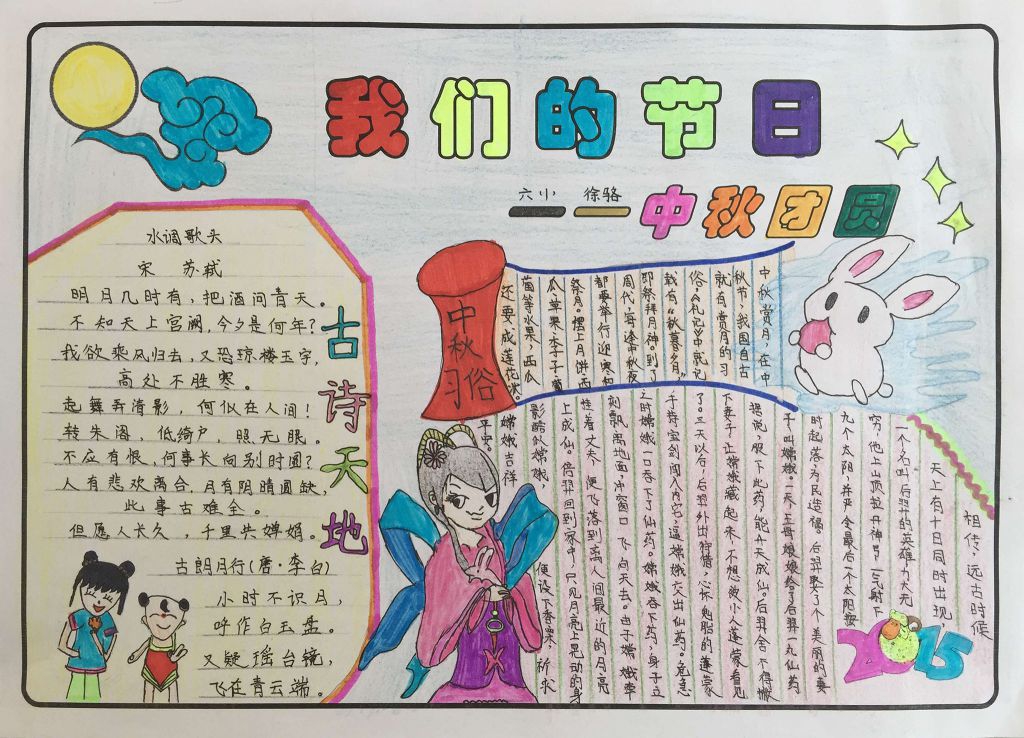 我们的节日
六小 徐骆
中秋团圆
水调歌头
宋 苏轼
明月几时有,把酒问青天。
不知天上宫阙,今夕是何年?
我欲乘风归去,又恐琼楼玉宇,
高处不胜寒。
起舞弄清影,何似在人间!
转朱阁,低绮户,照无眠。
不应有恨,何事长向别时圆?
人有悲欢离合,月有阴晴圆缺,
此事古难全。
但愿人长久,千里共婵娟。
古朗月行(唐·李白)
小时不识月,
呼作白玉盘。
又疑瑶台镜,
飞在青云端。
古诗天地
中秋习俗
中秋赏月,在中
秋节,我国自古
就有赏月的习
俗,《札记》中就记
载有“秋暮夕月”,
即祭拜月神。到了
周代,每逢中秋夜
都要举行迎寒和
祭月。摆上月饼、西
瓜、苹果、李子、葡
萄等水果,西瓜
还要成莲花状。
相传,远古时候
天上有十日同时出现,
一个名叫后羿的英雄,力大无
穷,他上山顶拉开神弓,一气射下
九个太阳,并严令最后一个太阳按
时起落,为民造福。后羿娶了个美丽的妻
子,叫嫦娥。一天,王母娘娘给了后羿一丸仙药,
据说,服下此药,能升天成仙。后羿舍不得撇
下妻子,让嫦娥藏起来,不想被小人蓬蒙看见
了。三天以后,后羿外出狩猎,心怀鬼胎的蓬蒙
手持宝剑闯入内宅,逼嫦娥交出仙药。危急
之时嫦娥一口吞下了仙药。嫦娥吞下药,身子立
刻飘离地面、冲窗口飞向天去。由于嫦娥牵
挂着丈夫,便飞落到离人间最近的月亮
上成仙。后羿回到家中,只见月亮上晃动的身
影酷似嫦娥,便设下香案,祈求
嫦娥吉祥
平安。
2015